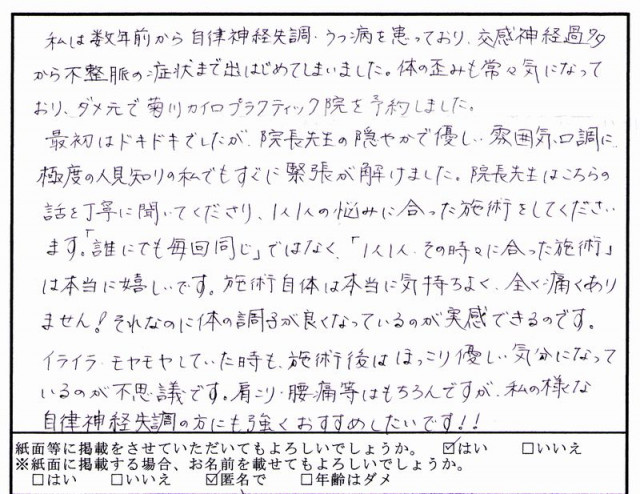 私は数年前から自律神経失調・うつ病を患っており、交感神経過多
から不整脈の症状まで出はじめてしまいました。体の歪みも常々気になって
おり、ダメ元で菊川カイロプラクティック院を予約しました。
最初はドキドキでしたが、院長先生の隠やかで優しい雰囲気、口調に
極度の人見知りの私でもすぐに緊張が解けました。院長先生はこちらの
話を丁寧に聞いてくださり、1人1人の悩みに合った施術をしてください
ます。「誰にでも毎回同じ」ではなく、「1人1人、その時々に合った施術」
は本当に嬉しいです。施術自体は本当に気持ちよく、全く痛くあり
ません!それなのに体の調子が良くなっているのが実感できるのです。
イライラ・モヤモヤしていた時も、施術後はほっこり優しい気分になって
いるのが不思議です。肩こり・腰痛等はもちろんですが、私の様な
自律神経失調の方にも強くおすすめしたいです!!
紙面等に掲載をさせていただいてもよろしいでしょうか。 ☑はい □いいえ
※紙面に掲載する場合、お名前を載せてもよろしいでしょうか。
□はい □いいえ ☑匿名で □年齢はダメ